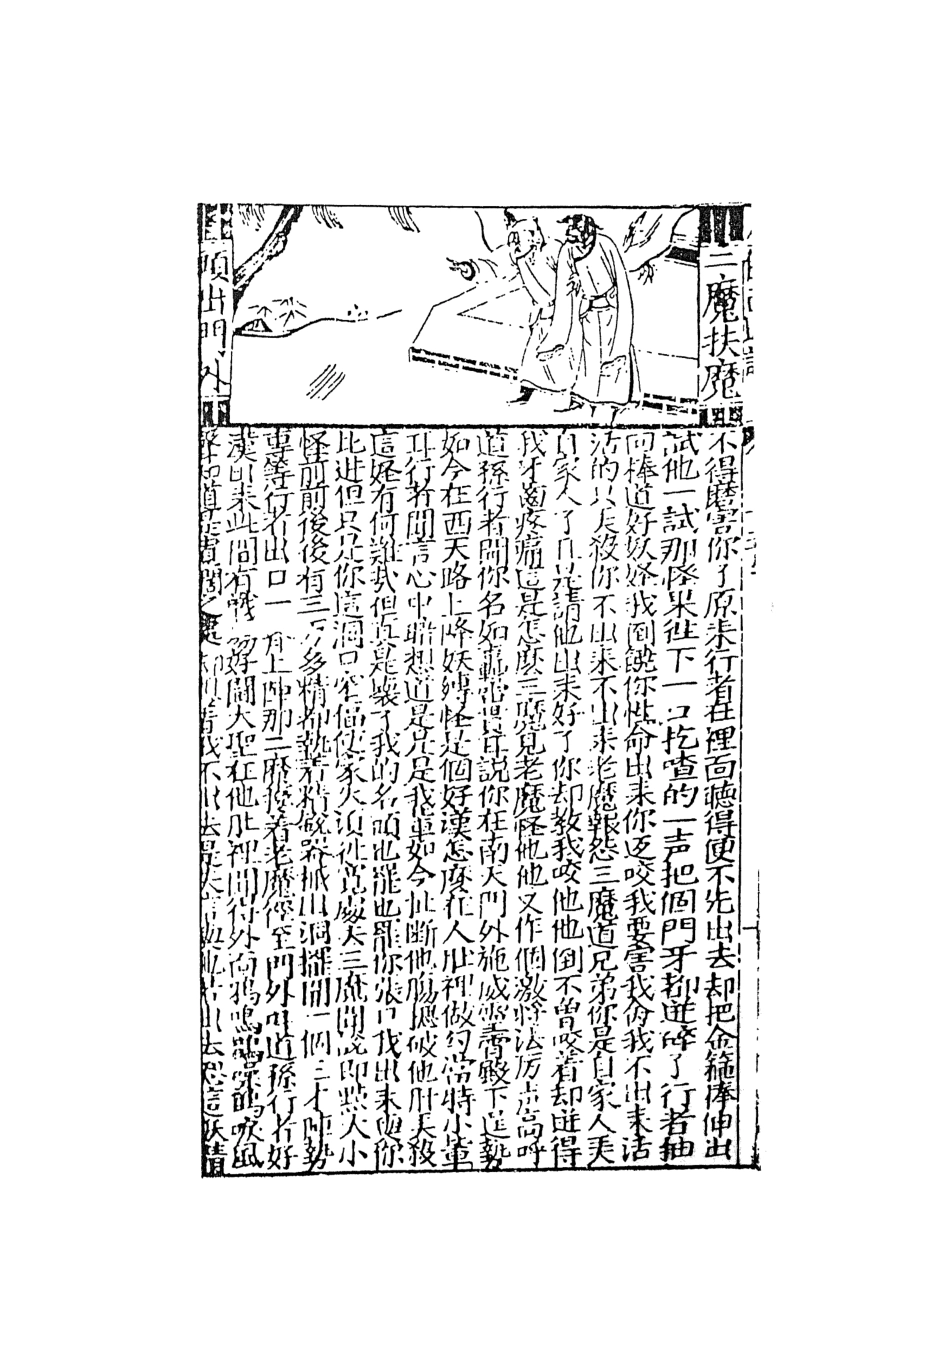 二魔扶魔
頭出門外
不得磨害你了原來行者在裡面聽得便不先出去却把金箍捧伸出
試他一試那怪果徃下一口扢喳的一声把個門牙都迸碎了行者抽
回棒道好妖怪我倒饒你性命出來你反咬我要害我命我不出來活
活的只夫殺你不出來不出來老魔報怨三魔道兄弟你是自家人美
自家人了且是請他出來好了你却教我咬他他倒不曾咬着却迸得
我牙齒疼痛這是怎麼三魔見老魔怪他他又作個激將法厉声高呼
道孫行者聞你名如轟雷貫耳説你在南天門外施威靈霄殿下逞勢
如今在西天路上降妖縛怪是個好漢怎麼在人肚裡做勾當特小輩
耳行者聞言心中暗想道是是是我輩如今扯斷他腸摁破他肝夫殺
這怪有何難哉但真是壞了我的名頭也罷也罷你張口我出來與你
比迸但只是你這洞口窄偪使家火須徃寛處夫三魔聞說即點大小
怪前前後後有三万多精都執着精銳器械出洞擺開一個三才陣勢
專等行者出口一 上陣那二魔扶着老魔徑至門外叫道孫行者好
漢出來此間有戰 好鬪大聖在他肚裡聞得外面鴉鳴鵲噪鶴唳風
聲知道是寛闊之處 着我不出去是失言與他若出去這妖精